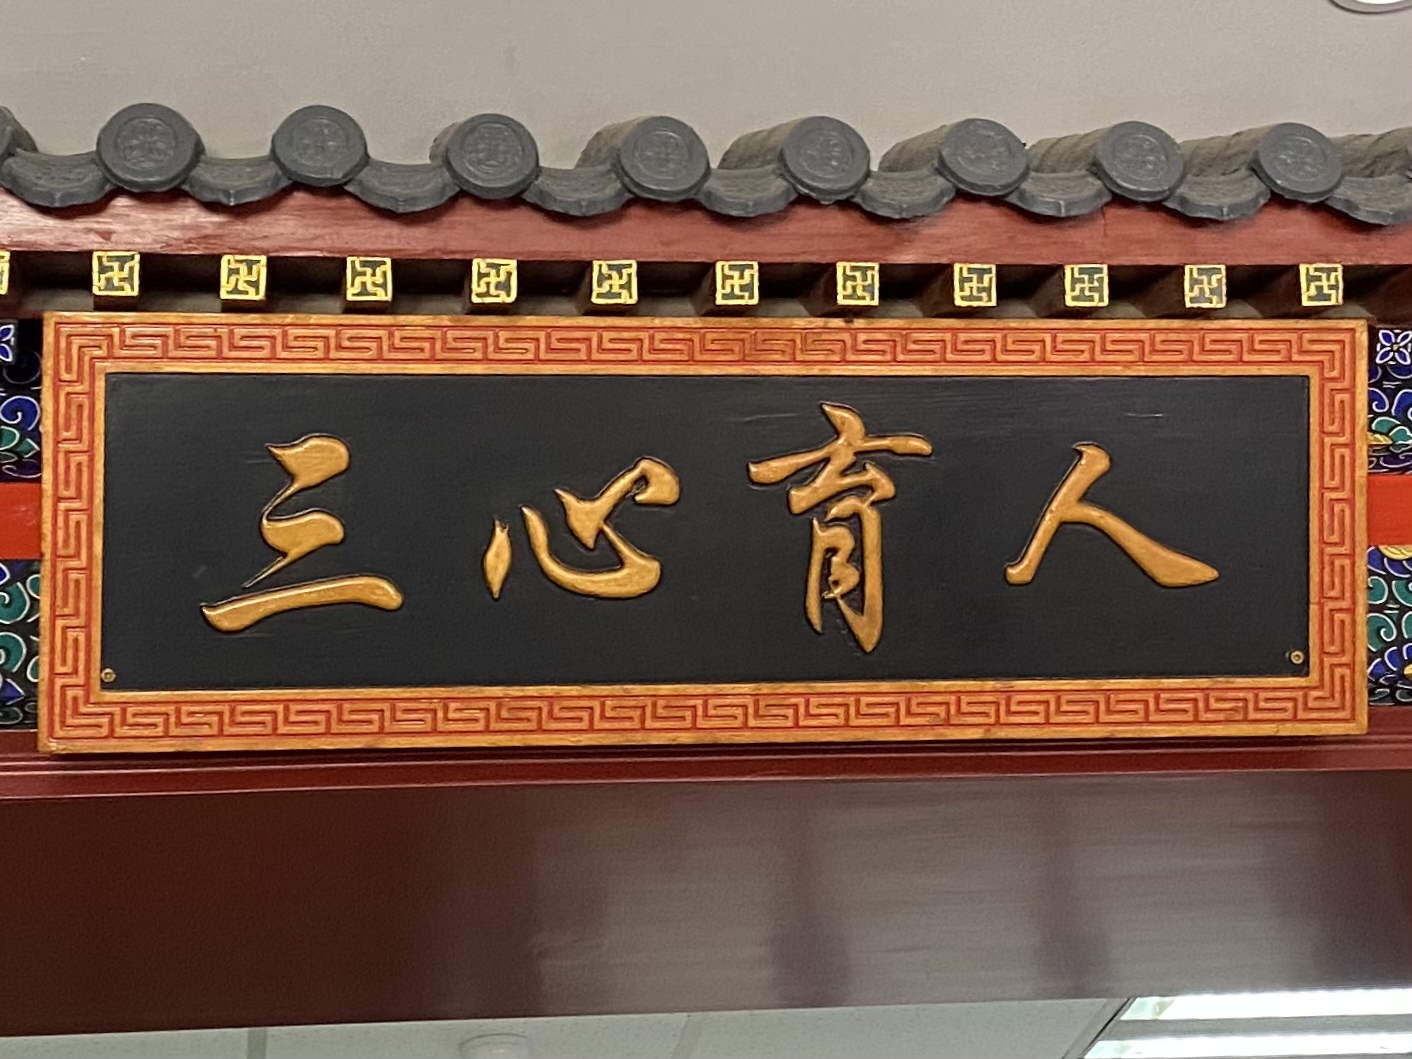 三心育人